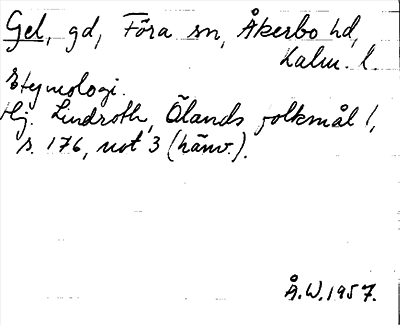 Gel, gd, Föra sn, Åkerbo hd,
Kalm. l.
Etymologi.
Hj. Lindroth, Ölands folkmål 1,
s. 176, not 3 (hänv.).
Å.W. 1957.